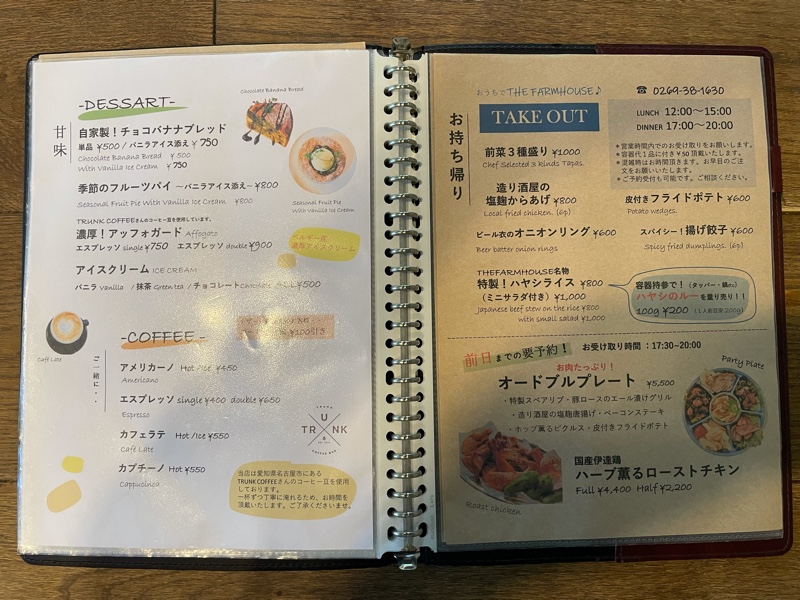 -DESSART-
甘味
Chocolate Banana Bread
自家製！チョコバナナブレッド
単品 ¥500 / バニラアイス添え ¥750
Chocolate Banana Bread ¥500
With Vanilla Ice Cream ¥750
季節のフルーツパイ 〜バニラアイス添え〜 ¥800
Seasonal Fruit Pie With Vanilla Ice Cream ¥800
Seasonal Fruit Pie
With Vanilla Ice Cream
TRUNK COFFEEさんのコーヒー豆を使用しています。
濃厚！アッフォガード Affogato
エスプレッソ single ¥750 エスプレッソ double ¥900
ベルギー産
濃厚アイスクリーム
アイスクリーム ICE CREAM
バニラ Vanilla / 抹茶 Green tea / チョコレート Chocolate ¥500
-COFFEE-
¥100引き
Café Late
ご一緒に・・
アメリカーノ Hot /Ice ¥450
Americano
エスプレッソ single ¥400 double ¥650
Espresso
カフェラテ Hot /Ice ¥550
Café Late
カプチーノ Hot ¥550
Cappucinca
TRUNK
U
TR NK
&
COFFEE BAR
当店は愛知県名古屋市にある
TRUNK COFFEEさんのコーヒー豆を使用
しております。
一杯ずつ丁寧に淹れるため、お時間を
頂戴いたします。ご了承くださいませ。
おうちで THE FARMHOUSE♪
TAKE OUT
お持ち帰り
☎ 0269-38-1630
LUNCH 12:00〜15:00
DINNER 17:00〜20:00
＊営業時間内でのお受け取りをお願いします。
＊容器代１品に付き¥50頂戴いたします。
＊混雑時はお時間頂きます。お早目のご注
文をお願いいたします。
＊ご予約受付も可能です。ご相談ください。
前菜３種盛り ¥1000
Chef Selected 3 kinds Tapas.
造り酒屋の
塩麹からあげ ¥800
Local fried chicken. (6p)
皮付きフライドポテト ¥600
Potato wedges.
ビール衣のオニオンリング ¥600
Beer batter onion rings
スパイシー！揚げ餃子 ¥600
Spicy fried dumplings. (6p)
THEFARMHOUSE名物
特製！ハヤシライス ¥800
（ミニサラダ付き）¥1,000
Japanese beef stew on the rice ¥800
with small salad ¥1,000
容器持参で！（タッパー・鍋etc）
ハヤシのルーを量り売り！！
100g ¥200 （1人前目安 200g）
前日までの要予約！ お受け取り時間：17:30~20:00
お肉たっぷり！
オードブルプレート ¥5,500
Party Plate
・特製スペアリブ・豚ロースのエール漬けグリル
・造り酒屋の塩麹唐揚げ・ベーコンステーキ
・ホップ薫るピクルス・皮付きフライドポテト
国産伊達鶏
ハーブ薫るローストチキン
Full ¥4,400 Half ¥2,200
Roast chicken